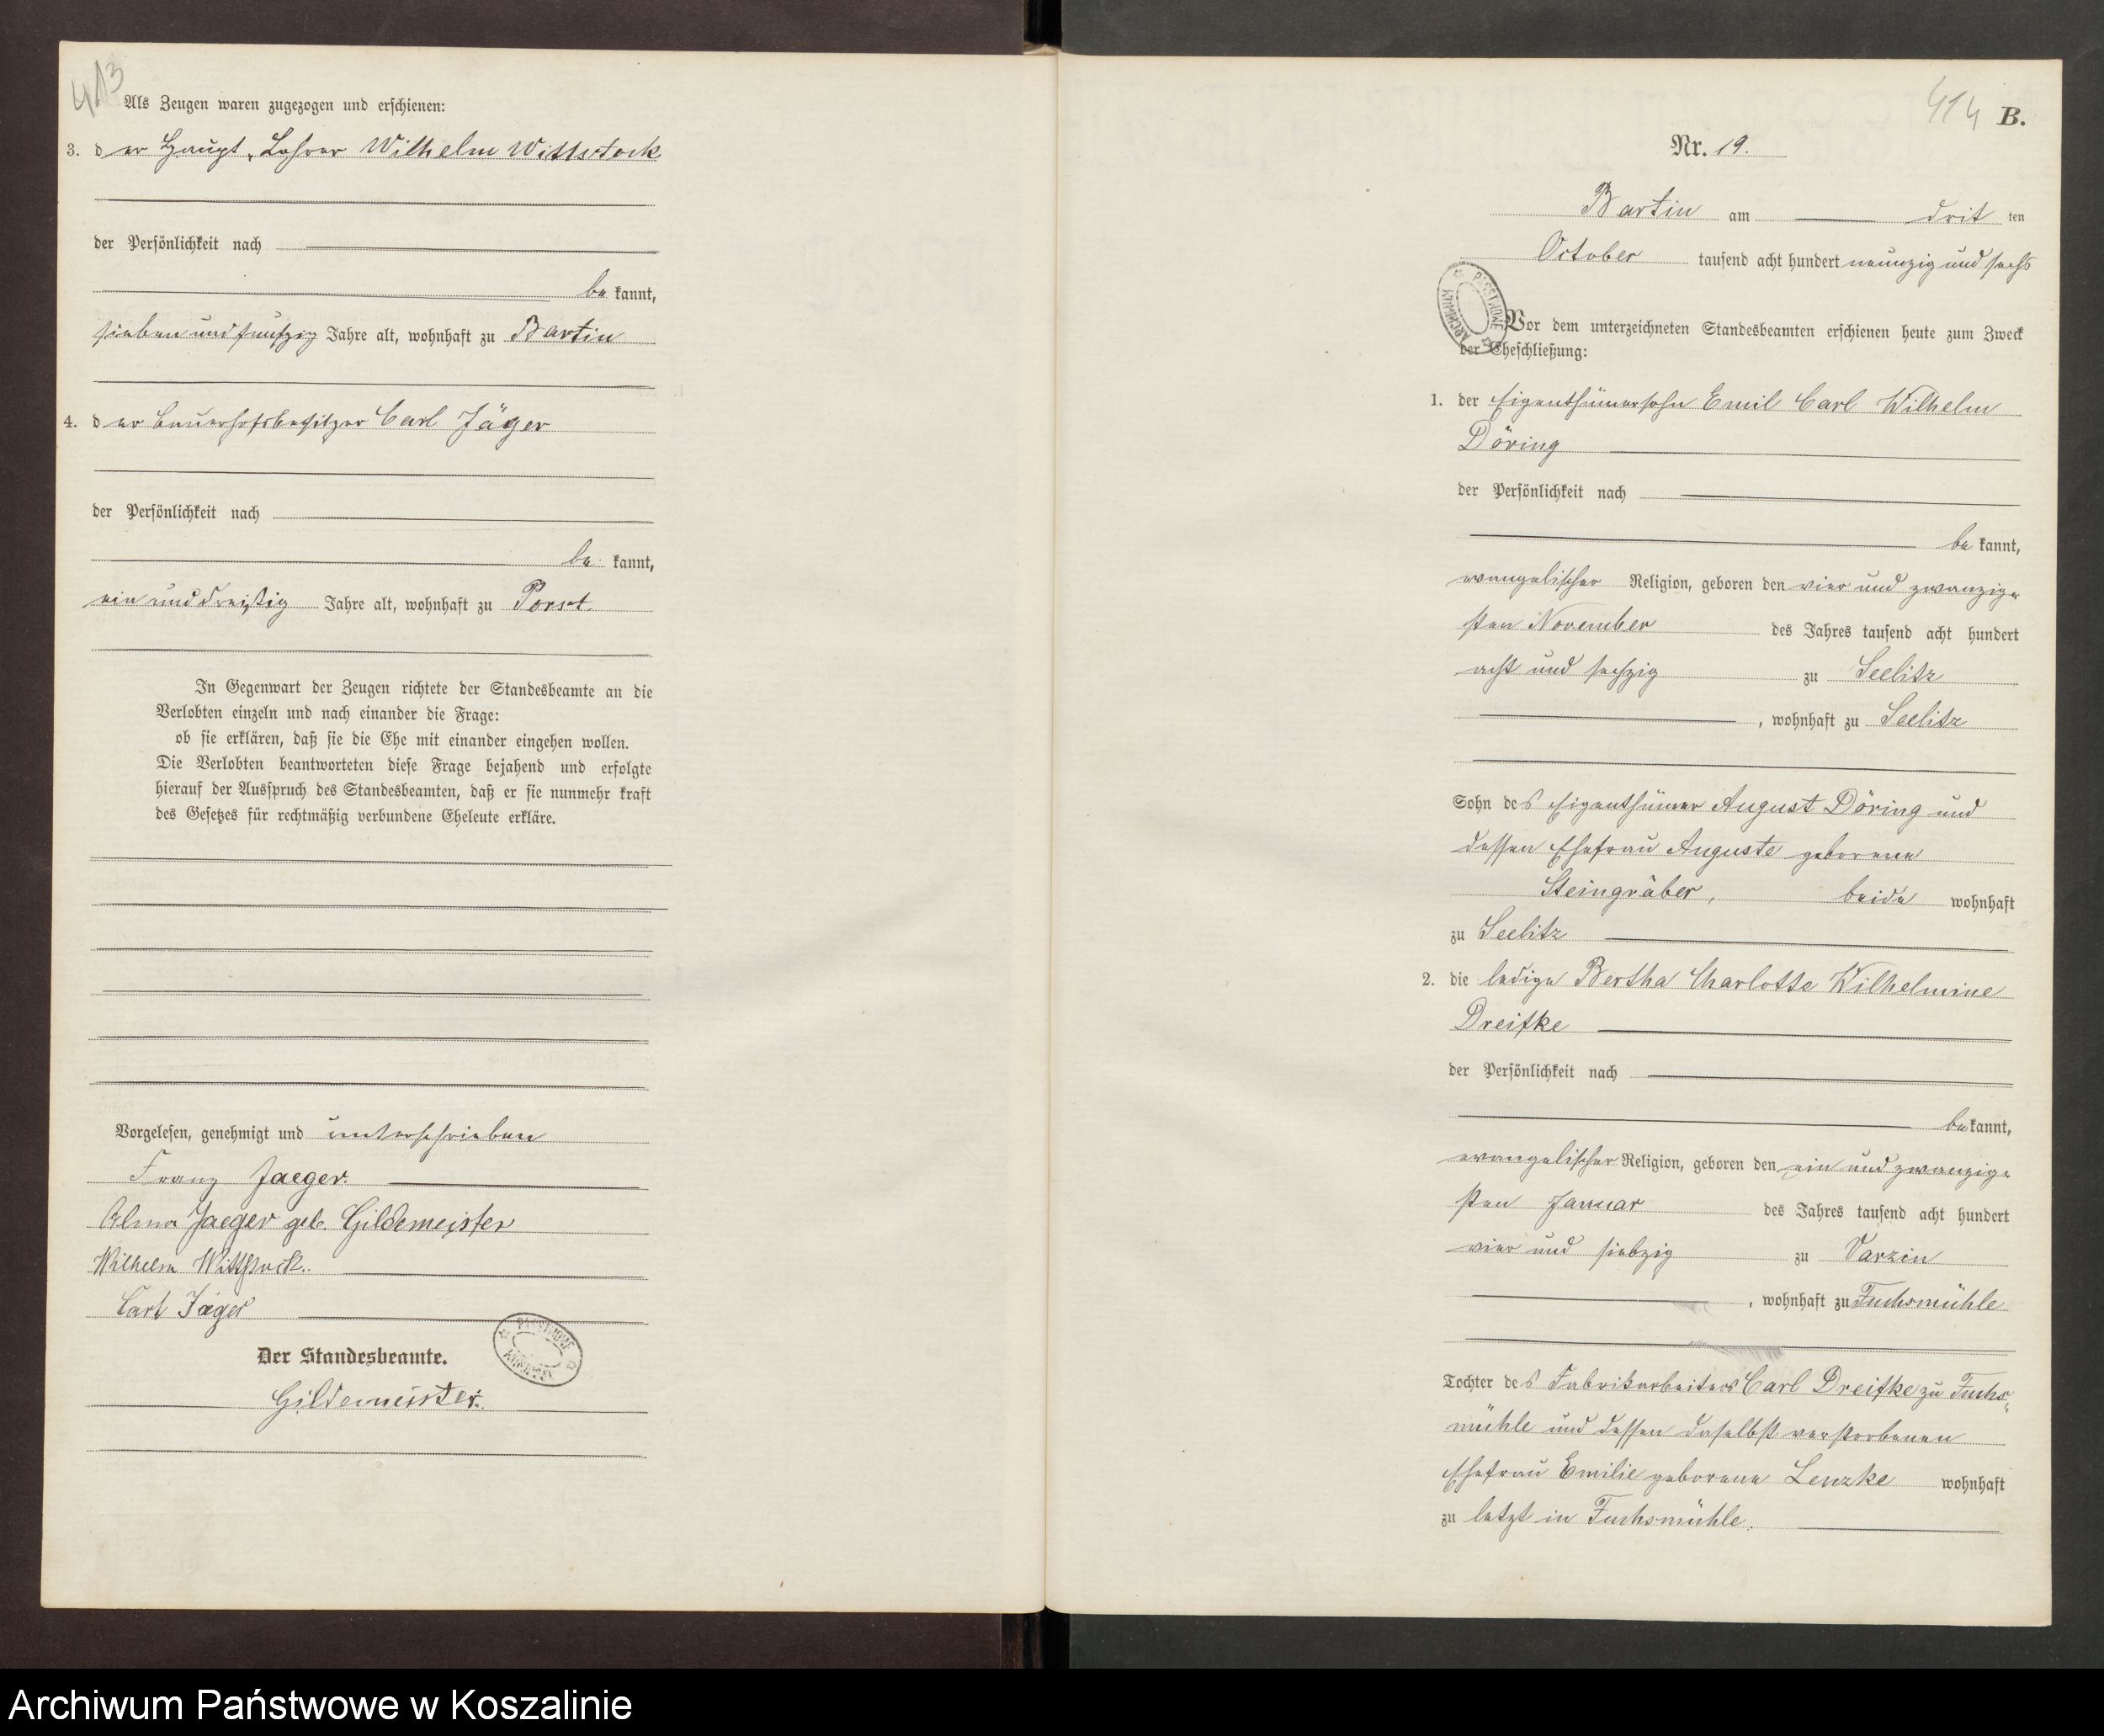 413
Als Zeugen waren zugezogen und erschienen:
3. der Haupt-Lehrer Wilhelm Wittstock
der Persönlichkeit nach
bekannt,
sieben und fünfzig Jahre alt, wohnhaft zu Bartin
4. der Bauerhofsbesitzer Carl Jäger
der Persönlichkeit nach
bekannt,
ein und dreißig Jahre alt, wohnhaft zu Porst
In Gegenwart der Zeugen richtete der Standesbeamte an die
Verlobten einzeln und nach einander die Frage:
ob sie erklären, daß sie die Ehe mit einander eingehen wollen.
Die Verlobten beantworteten diese Frage bejahend und erfolgte
hierauf der Ausspruch des Standesbeamten, daß er sie nunmehr kraft
des Gesetzes für rechtmäßig verbundene Eheleute erkläre.
Vorgelesen, genehmigt und unterschrieben
Franz Jaeger.
Alma Jaeger geb. Gildemeister
Wilhelm Wittstock.
Carl Jäger
Der Standesbeamte.
Gildemeister.
414 B.
Nr. 19.
Bartin am dritten
October tausend acht hundert neunzig und sechs
Vor dem unterzeichneten Standesbeamten erschienen heute zum Zweck
der Eheschließung:
1. der Eigenthümersohn Emil Carl Wilhelm
Döring
der Persönlichkeit nach
bekannt,
evangelischer Religion, geboren den vier und zwanzig-
sten November des Jahres tausend acht hundert
acht und sechzig zu Seelitz
, wohnhaft zu Seelitz
Sohn des Eigenthümer August Döring und
dessen Ehefrau Auguste geborene
Steingräber, beide wohnhaft
zu Seelitz
2. die ledige Bertha Charlotte Wilhelmine
Dreifke
der Persönlichkeit nach
bekannt,
evangelischer Religion, geboren den ein und zwanzig-
sten Januar des Jahres tausend acht hundert
vier und siebzig zu Varzin
, wohnhaft zu Fuchsmühle
Tochter des Fabrikarbeiters Carl Dreifke zu Fuchs-
mühle und dessen daselbst verstorbenen
Ehefrau Emilie geborene Lenzke wohnhaft
zu letzt in Fuchsmühle.
Archiwum Państwowe w Koszalinie